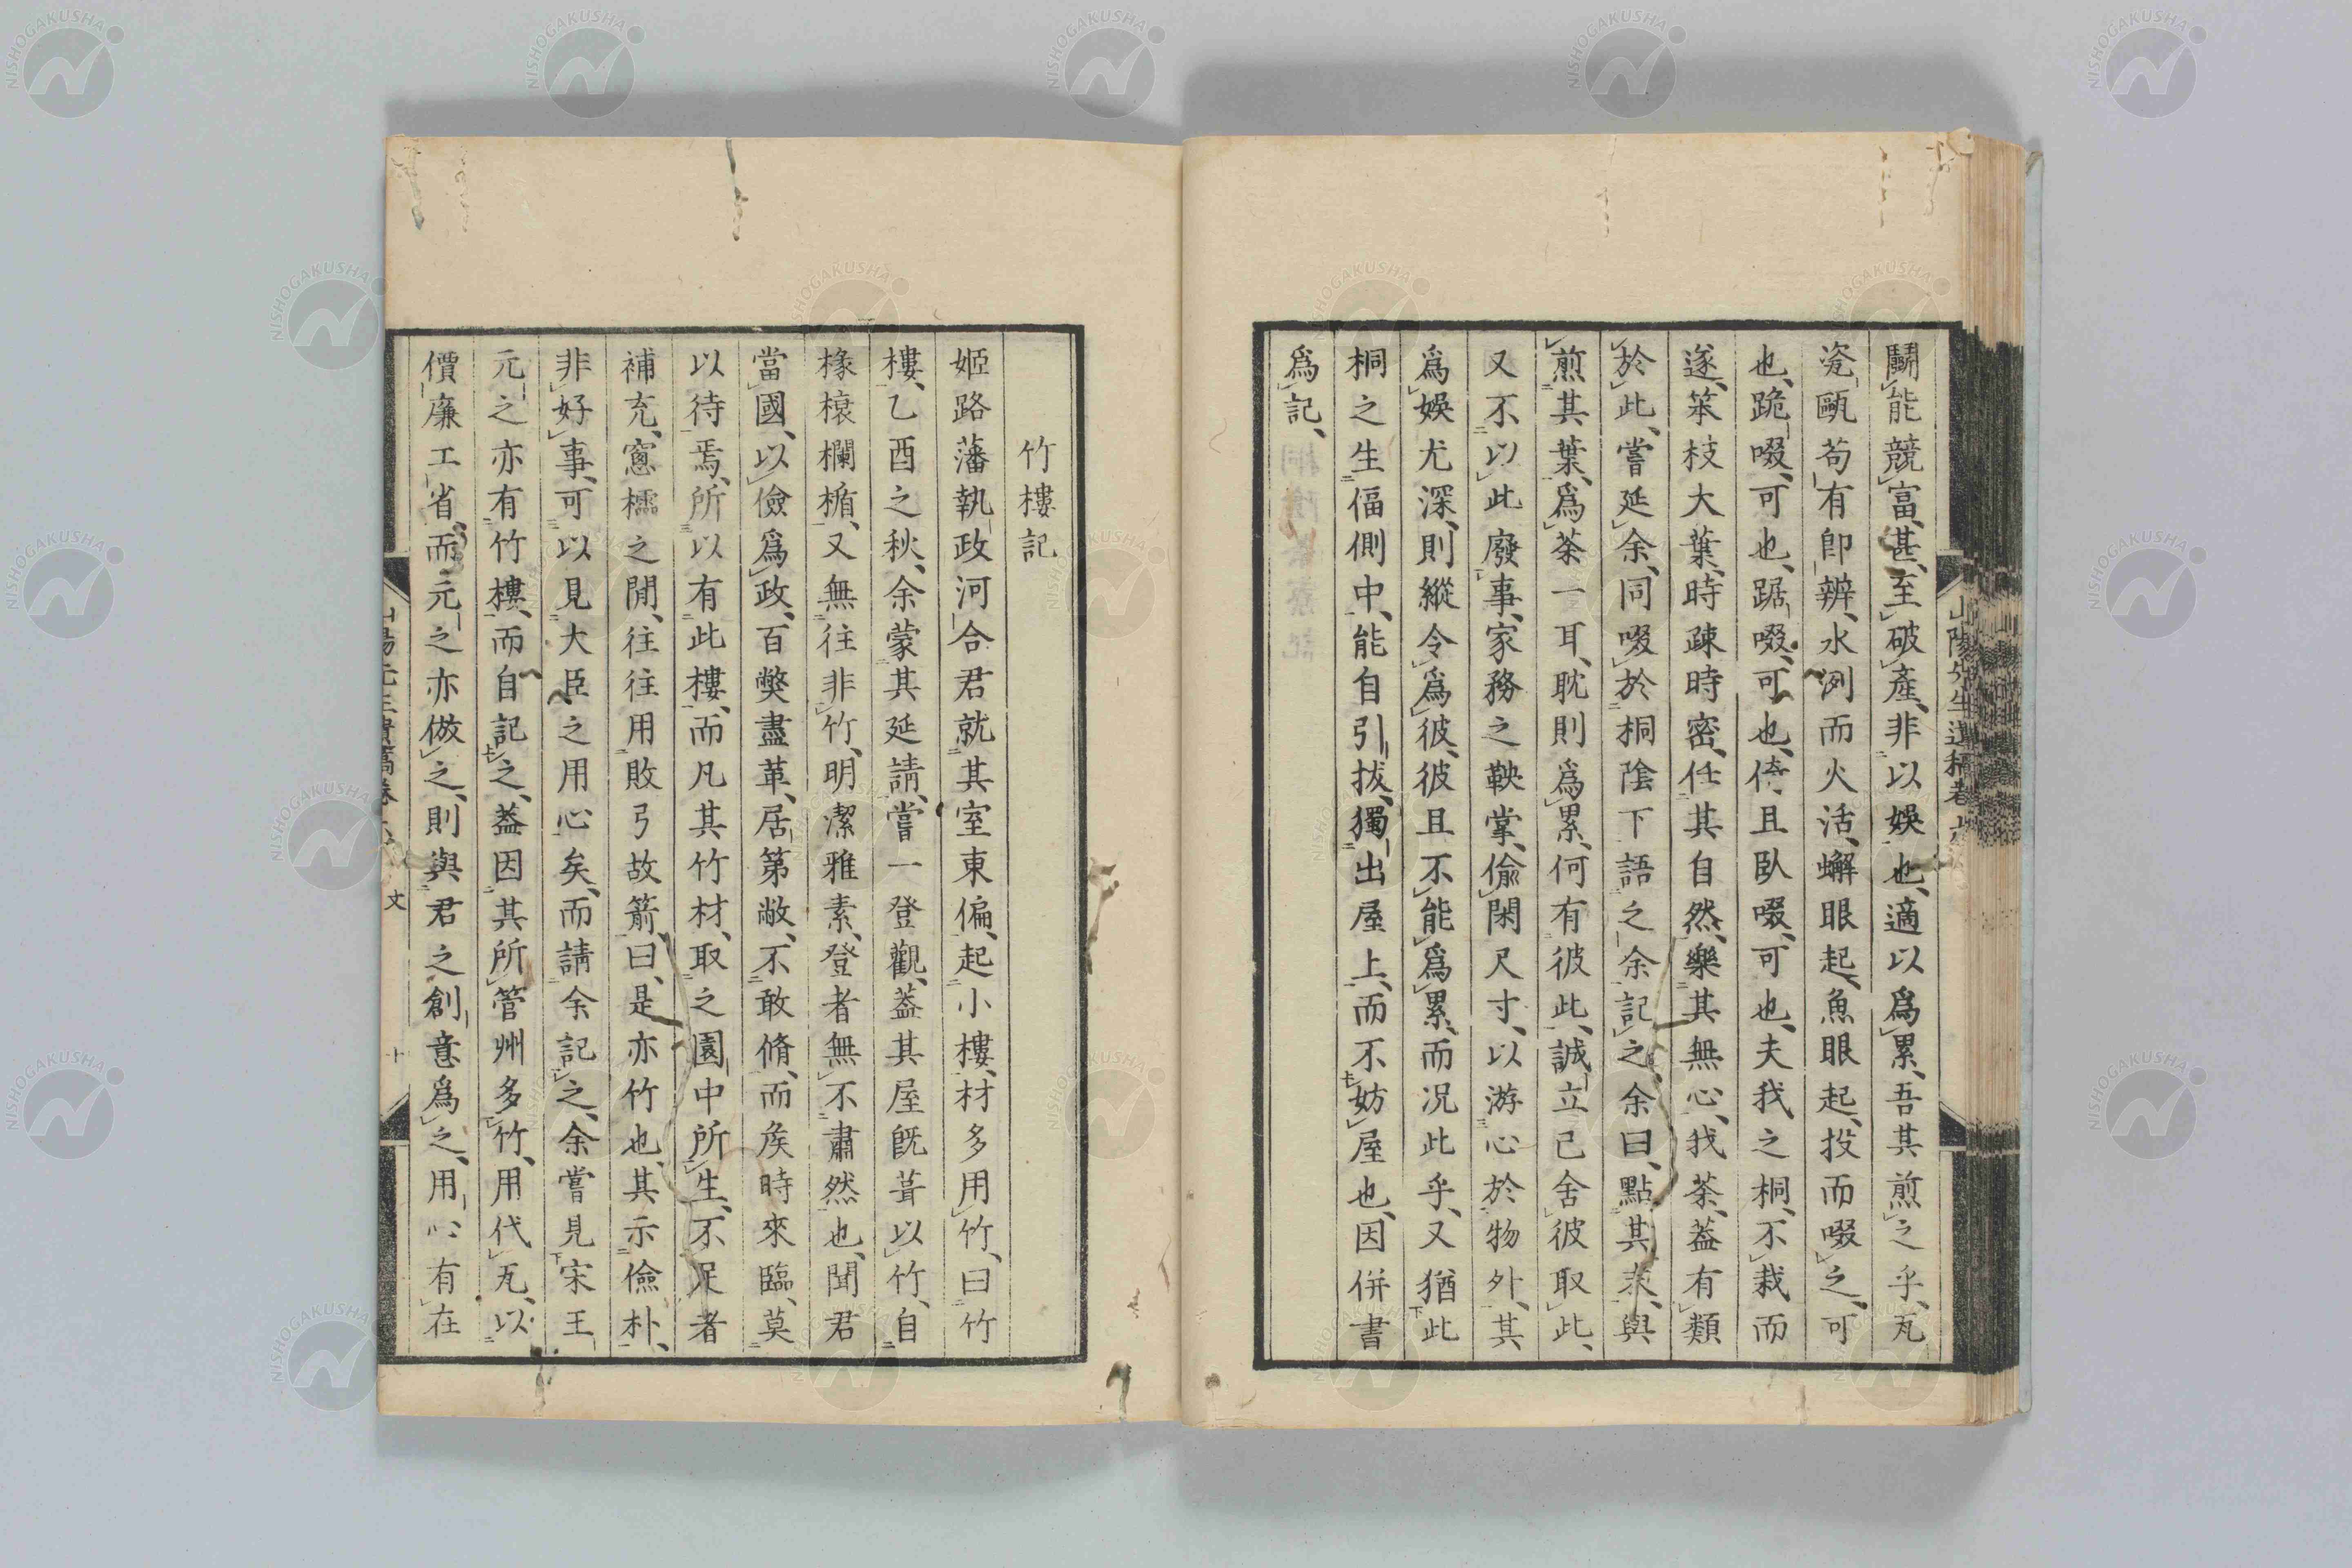 鬭能競富、甚至破產、非以娛也、適以爲累、吾其煎之乎、瓦
瓷甌苟有卽辨、水洌而火活、蠏眼起、魚眼起、投而啜之、可
也、跪啜、可也、踞啜、可也、倚且臥啜、可也、夫我之桐、不栽而
遂、笨枝大葉、時疎時密、任其自然、樂其無心、我茶、葢有類
於此、嘗延余、同啜於桐陰下、語之余記之、余曰、點其末、與
煎其葉、爲茶一耳、耽則爲累、何有彼此、誠立已舍彼取此、
又不以此廢事、家務之鞅掌、偷閑尺寸、以游心於物外、其
爲娛尤深、則縱令爲彼、彼且不能爲累、而況此乎、又猶此
桐之生偪側中、能自引拔、獨出屋上、而不妨屋也、因併書
爲記、
山陽先生遺稿卷六
竹樓記
姬路藩執政河合君就其室東偏、起小樓、材多用竹、曰竹
樓、乙酉之秋、余蒙其延請、嘗一登觀、葢其屋既葺以竹、自
椽榱欄楯、又無往非竹、明潔雅素、登者無不肅然也、聞君
當國、以儉爲政、百弊盡革、居第敝、不敢脩、而矦時來臨、莫
以待焉、所以有此樓、而凡其竹材、取之園中所生、不足者
補充、窻櫺之閒、往往用敗弓故箭、曰、是亦竹也、其示儉朴、
非好事、可以見大臣之用心矣、而請余記之、余嘗見宋王
元之亦有竹樓、而自記之、葢因其所管州多竹、用代瓦、以
價廉工省、而元之亦倣之、則與君之創意爲之、用心有在
文
十
NISHOGAKUSHA